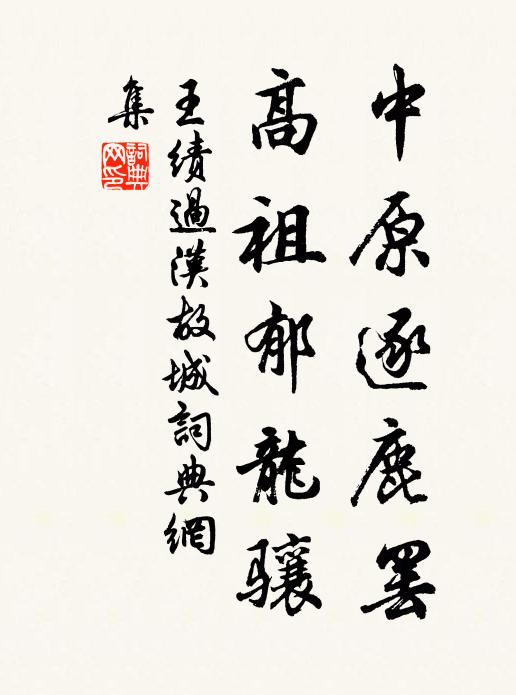 中原逐鹿罢
高祖郁龍骧
王绩過漢故城詞典網
集
詞典网印